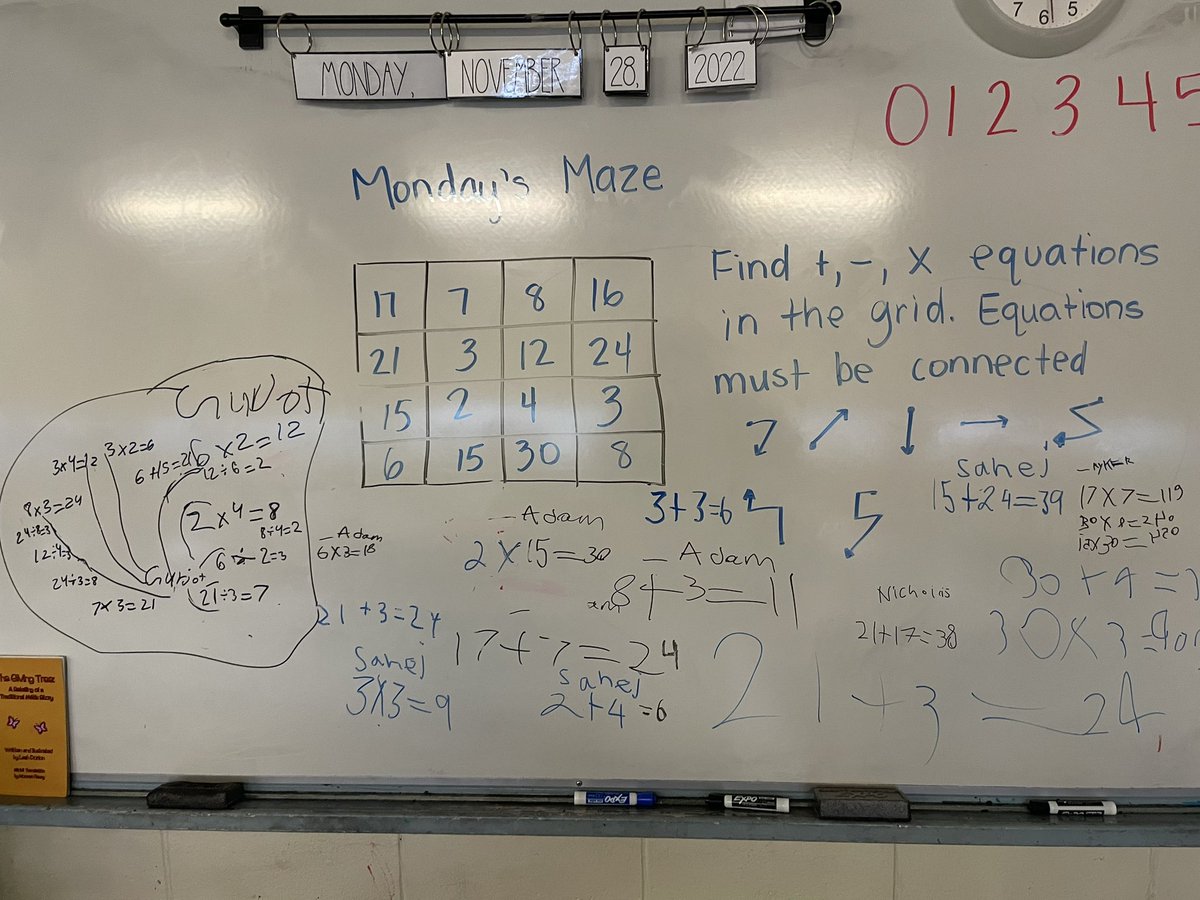 7 6 5
MONDAY, NOVEMBER 28, 2022
0 1 2 3 4 5
Monday's Maze
17 7 8 16
21 3 12 24
15 2 4 3
6 15 30 8
Find +, -, x equations
in the grid. Equations
must be connected
3x4=12
3x2=6
6x2=12
12÷6=2
8x3=24
2x4=8
8÷4=2
24÷3=8
6÷2=3
7x3=21
21÷3=7
- Adam
6x3=18
- Adam
2x15=30
3+3=6
- Adam
8+3=11
sahej
15+24=39
17x7=119
Nicholas
21+17=38
30+4=
30x3=90
21+3=24
17+7=24
Sahej
3x3=9
Sahej
2+4=6
21+3=24
The Giving Tree:
A Retelling of a
Traditional Métis Story
Written and Illustrated
by Leah Dorion
EXPO
EXPO